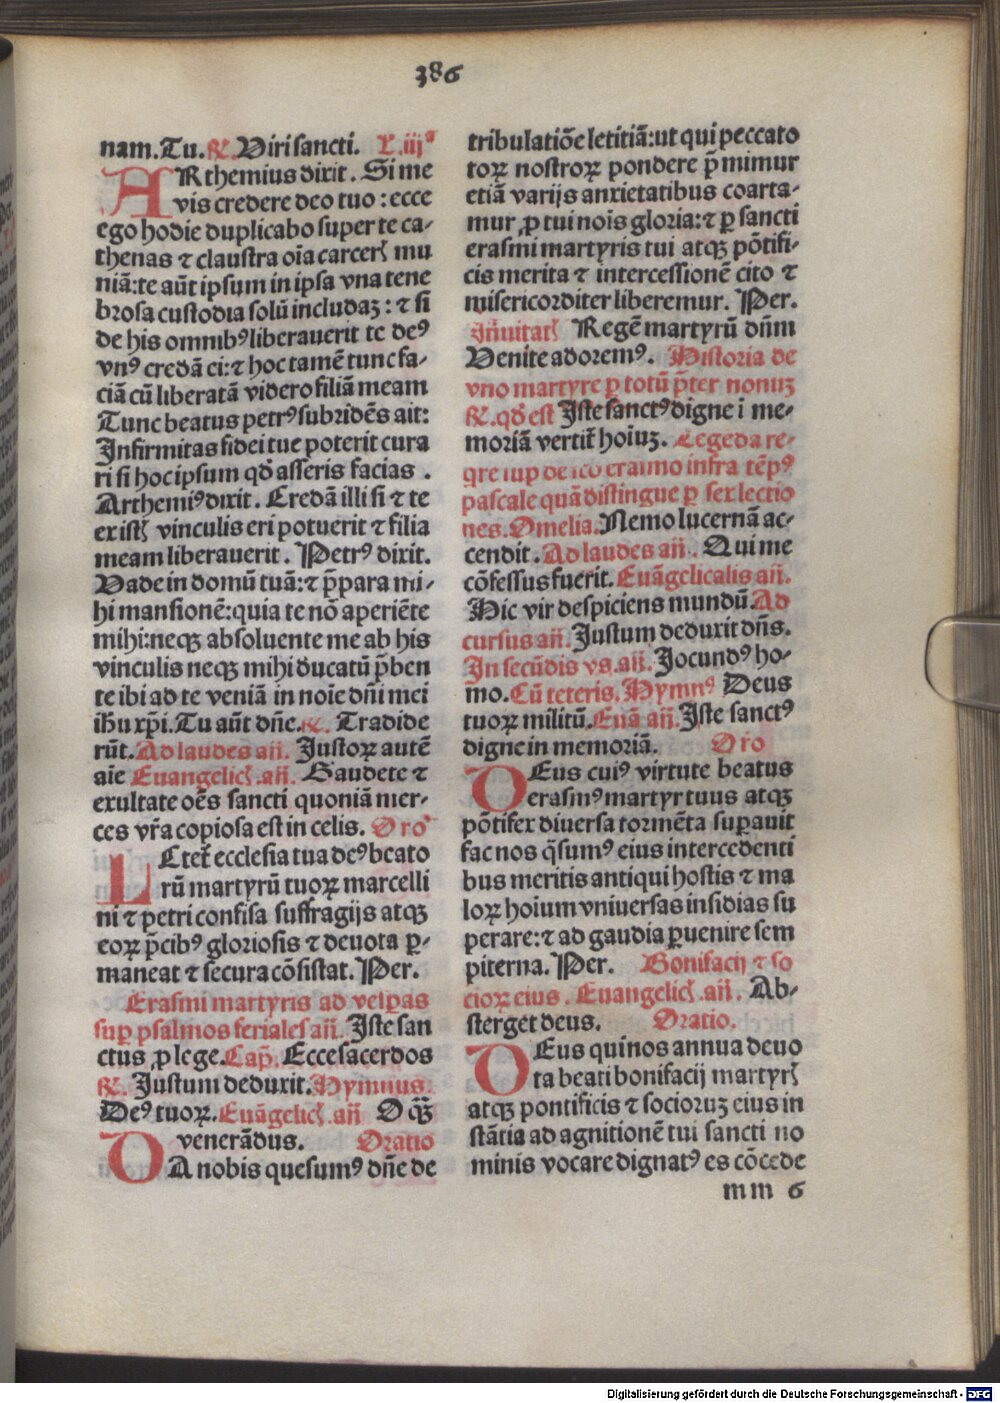 386
nam.Tu.℟.Viri sancti. L.iijᵃ
ARthemius dixit. Si me
vis credere deo tuo: ecce
ego hodie duplicabo super te ca-
thenas ⁊ claustra oīa carceꝝ mu
niā:te aūt ipsum in ipsa vna tene
brosa custodia solū includaꝫ: ⁊ si
de his omnibꝰ liberauerit te deꝰ
vnꝰ credā ei:⁊ hoc tamē tunc fa-
ciā cū liberatā videro filiā meam
Tunc beatus petrꝰ subridēs ait:
Infirmitas fidei tue poterit cura
ri si hoc ipsum qđ asseris facias.
Arthemiꝰ dixit. Credā illi si ⁊ te
ex istꝭ vinculis eri potuerit ⁊ filia
meam liberauerit. Petrꝰ dixit.
Vade in domū tuā:⁊ p̄para mi-
hi mansionē:quia te nō aperiēte
mihi:neqꝫ absoluente me ab his
vinculis neqꝫ mihi ducatū p̄ben
te ibi ad te veniā in noīe dn̄i mei
ihu xp̄i.Tu aūt dn̄e.℟. Tradide
rūt.Ad laudes an̄. Justoꝝ autē
aie Euangelicꝭ.an̄. Gaudete ⁊
exultate oēs sancti quoniā mer-
ces vr̄a copiosa est in celis. Oro
LEtet̄ ecclesia tua deꝰ beato
rū martyrū tuoꝝ marcelli
ni ⁊ petri confisa suffragijs atqꝫ
eoꝝ p̄cibꝰ gloriosis ⁊ deuota ꝑ-
maneat ⁊ secura cōsistat. Per.
Erasmi martyris ad vesꝑas
suꝑ psalmos feriales an̄. Iste san
ctus ꝓ lege.Cap̄. Ecce sacerdos
℟. Justum deduxit.Hymnus.
Deꝰ tuoꝝ. Euāgelicꝭ.an̄ O qꝫ̄
venerādus. Oratio
DA nobis quesumꝰ dn̄e de
tribulatiōe letitiā:ut qui peccato
toꝝ nostroꝝ pondere p̄mimur
etiā varijs anxietatibus coarta-
mur ꝓ tui noīs gloria:⁊ ꝑ sancti
erasmi martyris tui atqꝫ pōtifi-
cis merita ⁊ intercessionē cito ⁊
misericorditer liberemur. Per.
Inuitatꝭ Regē martyrū dn̄m
Venite adoremꝰ. Historia de
vno martyre ꝑ totū p̄ter nonuꝫ
℟. qđ est Iste sanctꝰ digne i me-
moriā vertit̄ hoiuꝫ. Legēda re-
erasmo infra tēpꝰ
pascale quā distingue ꝑ sex lectio
nes.Omelia.Nemo lucernā ac-
cendit.Ad laudes an̄. Qui me
cōfessus fuerit.Euāgelicalis an̄.
Hic vir despiciens mundū.Ad
cursus an̄.Justum deduxit dn̄s.
In secūdis vs.an̄.Jocundꝰ ho-
mo.Cū ceteris.Hymnꝰ Deus
tuoꝝ militū.Euā an̄.Iste sanctꝰ
digne in memoriā. Oro
DEus cuiꝰ virtute beatus
erasmꝰ martyr tuus atqꝫ
pōtifex diuersa tormēta suꝑauit
fac nos q̄sumꝰ eius intercedenti
bus meritis antiqui hostis ⁊ ma
loꝝ hoium vniuersas insidias su
perare:⁊ ad gaudia ꝑuenire sem
piterna. Per. Bonifacij ⁊ so
cioꝝ eius. Euangelicꝭ.an̄. Ab-
sterget deus. Oratio.
DEus qui nos annua deuo
ta beati bonifacij martyrꝭ
atqꝫ pontificis ⁊ socioruꝫ eius in
stātia ad agnitionē tui sancti no
minis vocare dignatꝰ es cōcede
mm 6
Digitalisierung gefördert durch die Deutsche Forschungsgemeinschaft - DFG